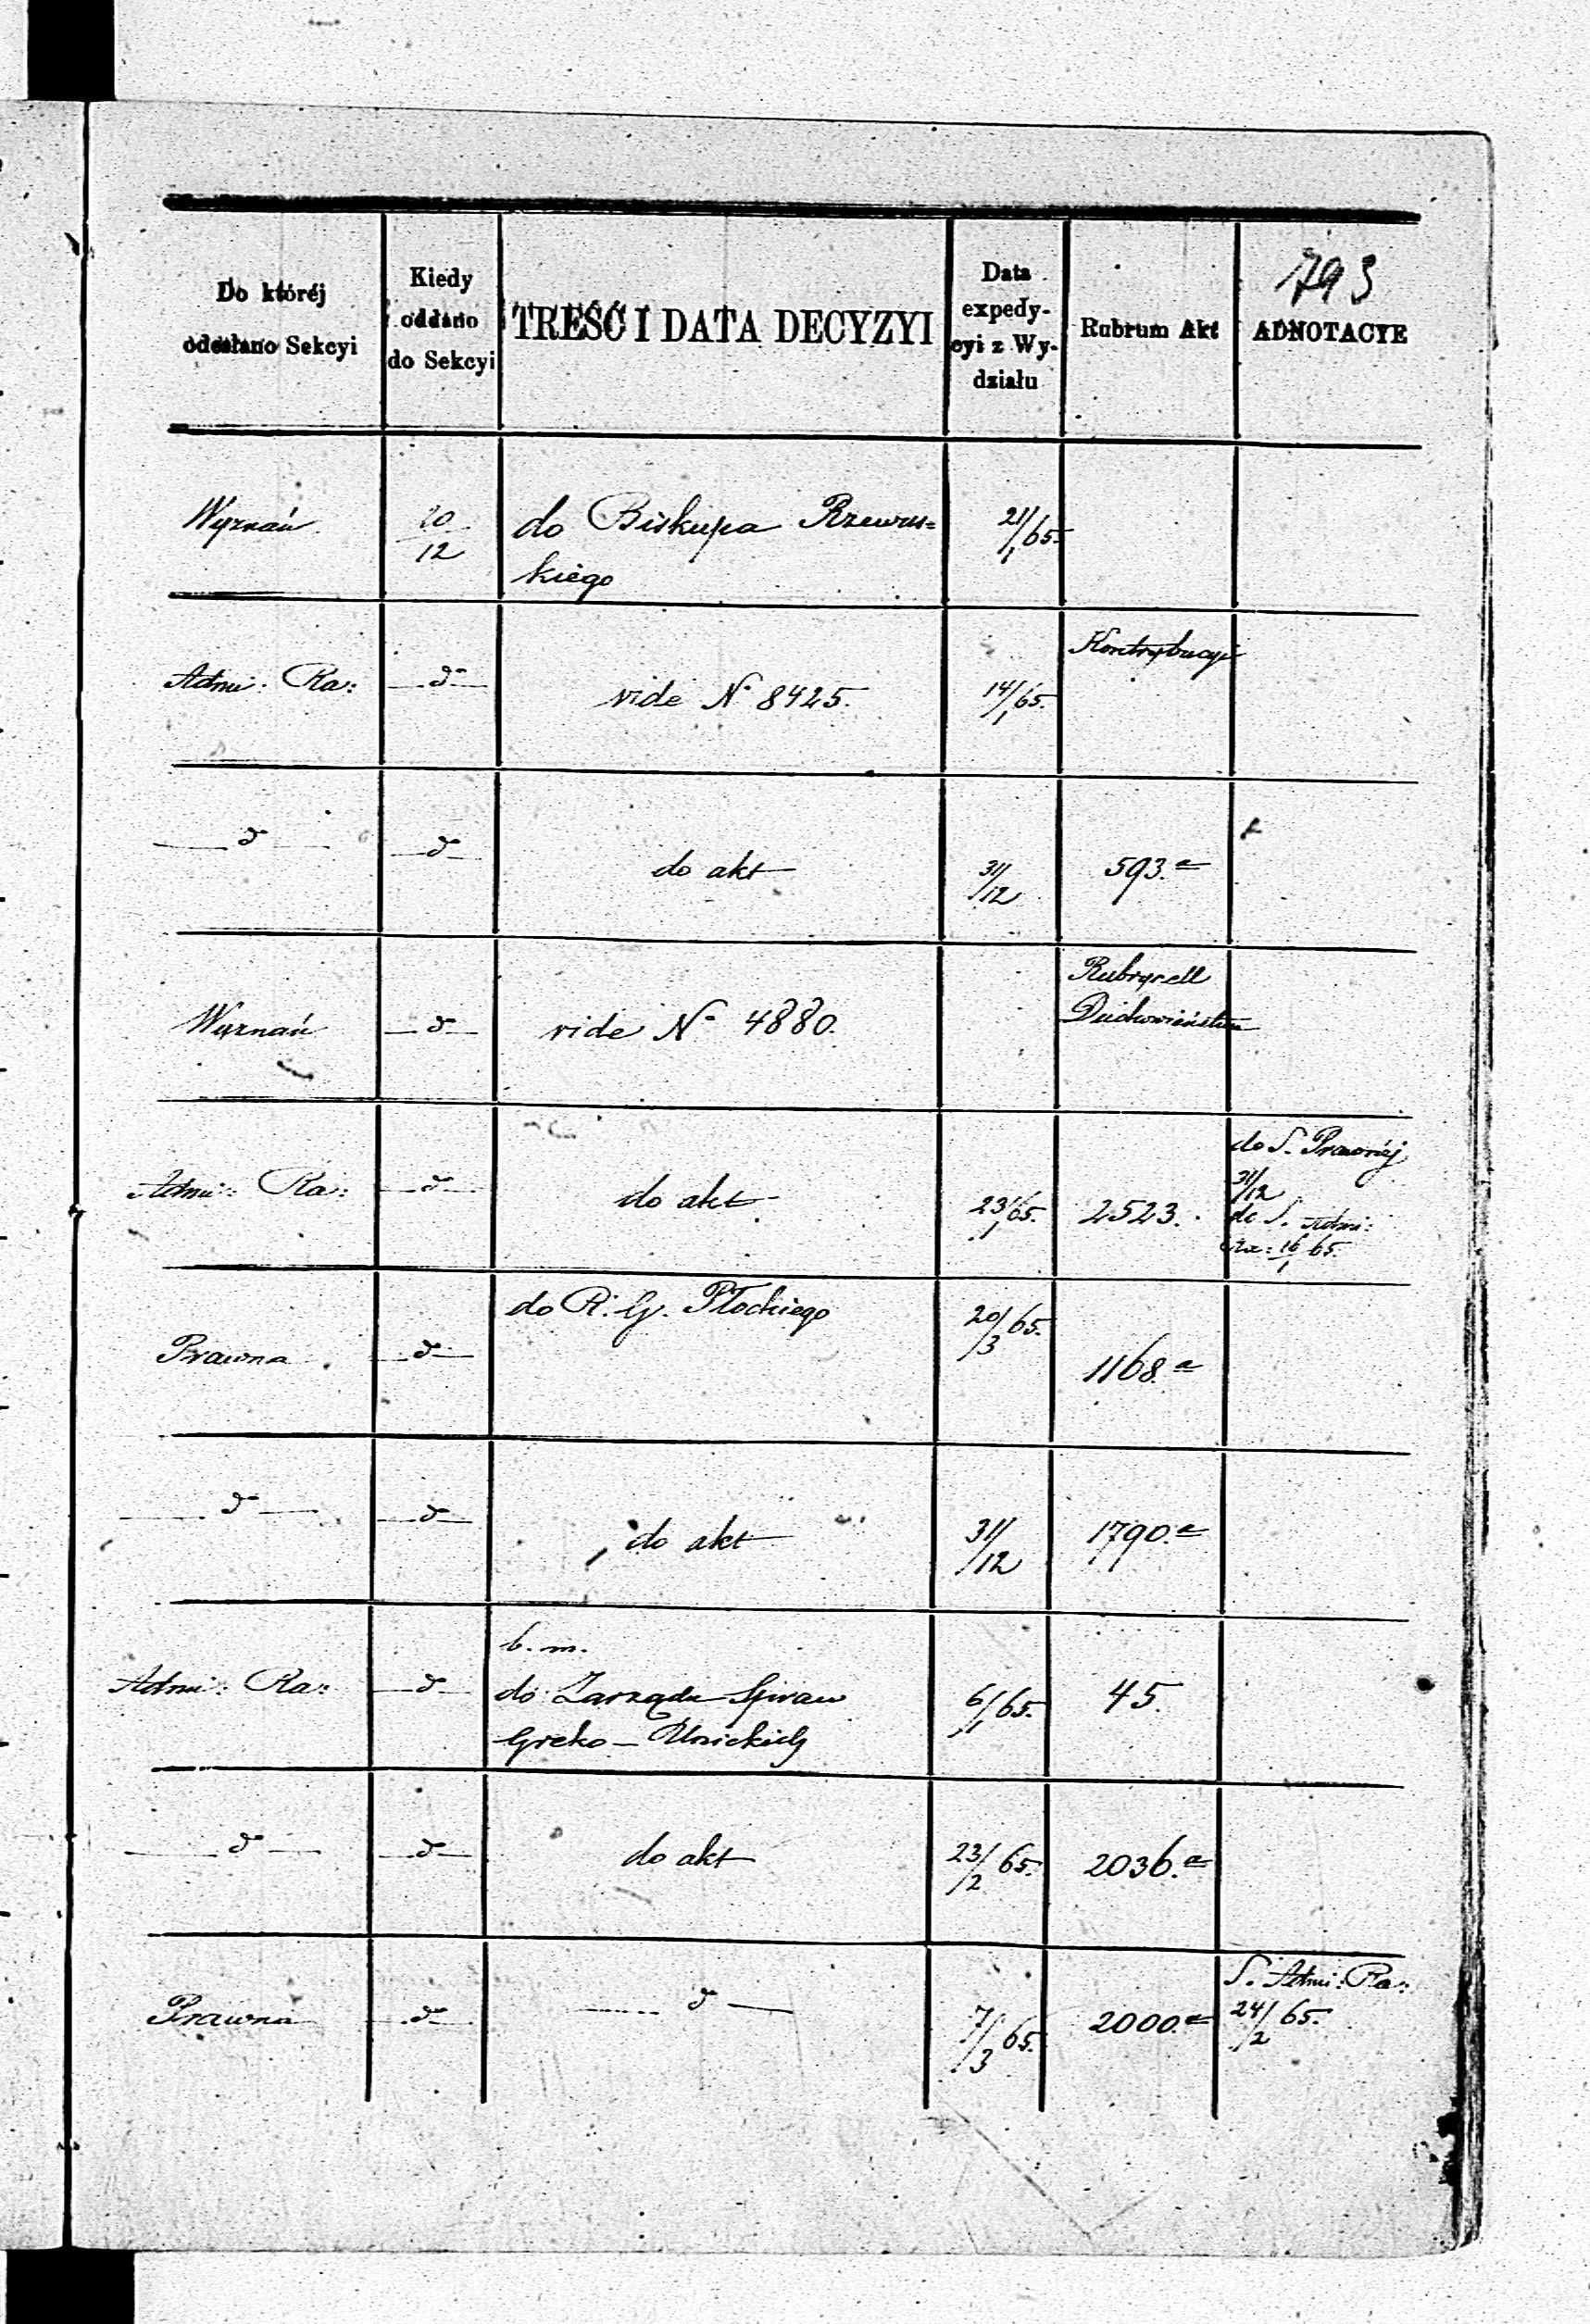 793
Do któréj
odesłano Sekcyi
Kiedy
oddano
do Sekcyi
TREŚĆ I DATA DECYZYI
Data
expedy-
cyi z Wy-
działu
Rubrum Akt
ADNOTACYE
Wyznań
20
12
do Biskupa Rzewus=
kiego
21/1 65.
Admi: Ra:
d°
vide N° 8425.
14/1 65.
Kontrybucyi
d°
d°
do akt
31/12
593.a
Wyznań
d°
vide N° 4880.
Rubrycell
Duchowieństwa
Admi: Ra:
d°
do akt
23/1 65.
2523.
do S. Prawnéj
31/12
do S. Admi:
Ra: 16/1 65.
Prawna
d°
do R. G. Płockiego
20/3 65.
1168.a
d°
d°
do akt
31/12
1790.a
Admi: Ra:
d°
b. m.
do Zarządu Spraw
Greko-Unickich
6/1 65.
45.
d°
d°
do akt
23/2 65.
2036.a
Prawna
d°
d°
7/3 65.
2000.a
S. Admi: Ra:
24/2 65.